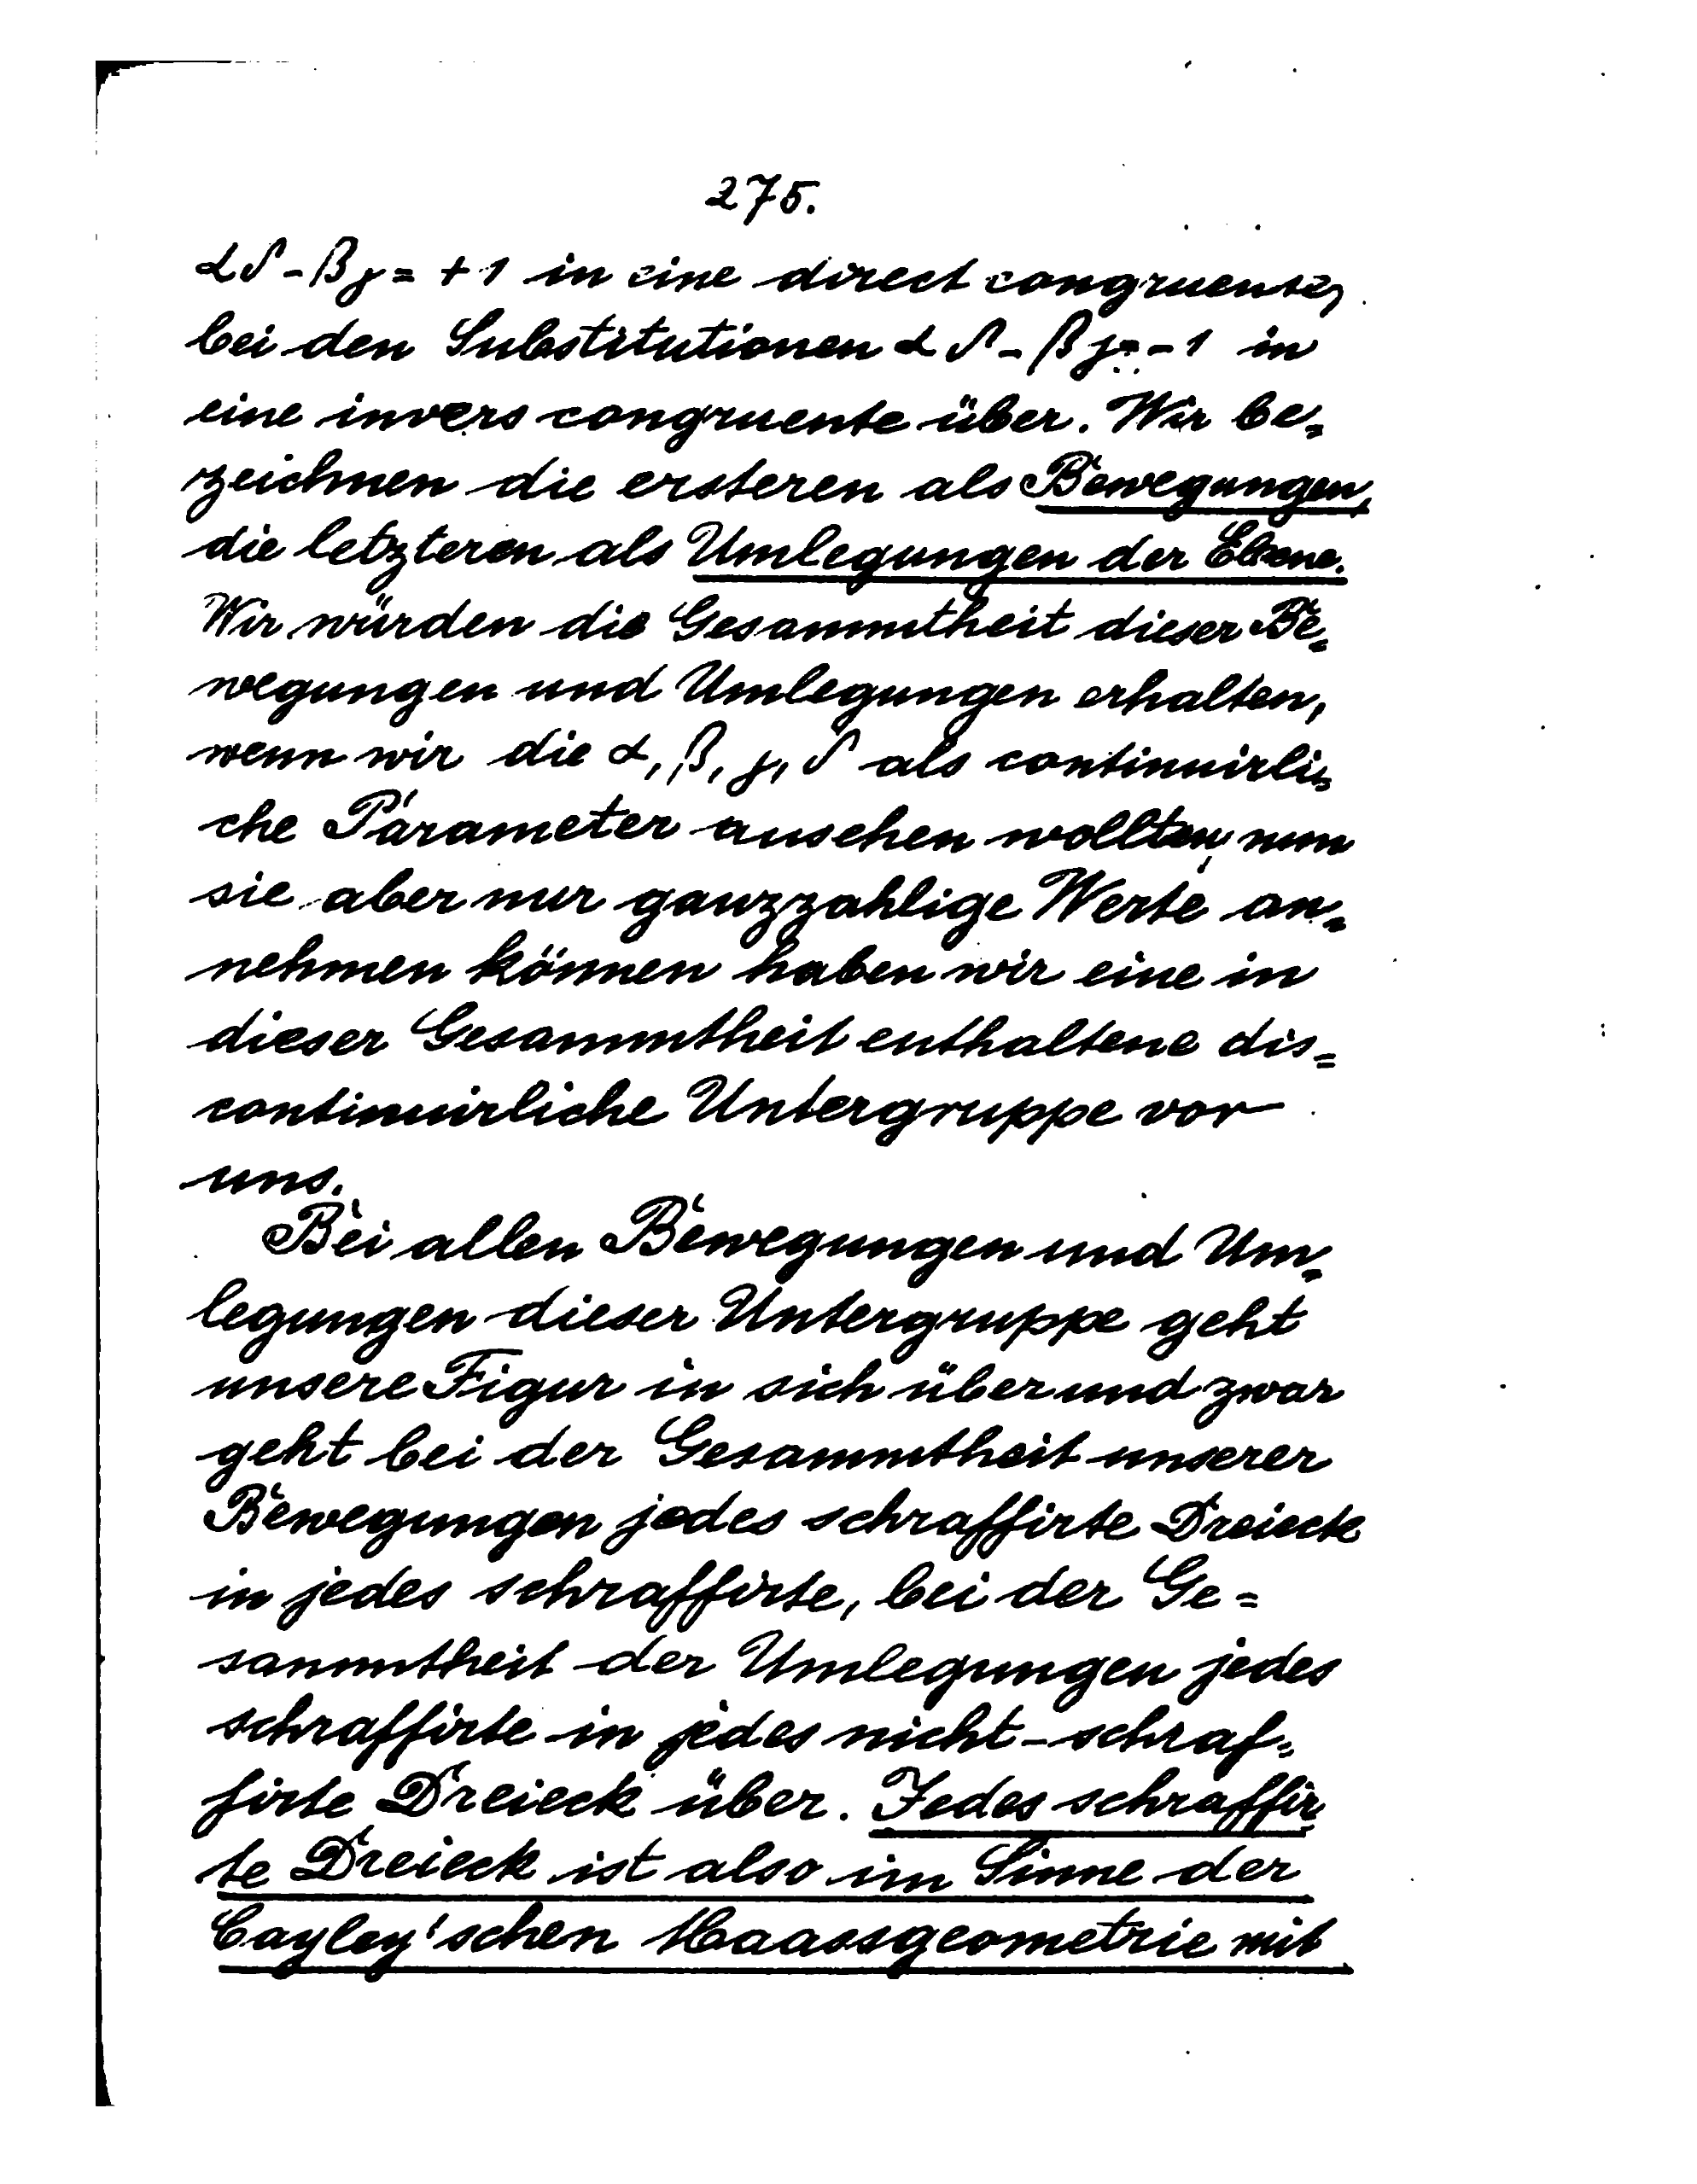 275.
αδ-βγ=+1 in eine direct congruente,
bei den Substitutionen αδ-βγ=-1 in
eine invers congruente über. Wir be-
zeichnen die ersteren als Bewegungen,
die letzteren als Umlegungen der Ebene.
Wir würden die Gesammtheit dieser Be-
wegungen und Umlegungen erhalten,
wenn wir die α, β, γ, δ als continuirli-
che Parameter ansehen wollten, nun
sie aber nur ganzzahlige Werte an-
nehmen können haben wir eine in
dieser Gesammtheit enthaltene dis=
continuirliche Untergruppe vor
uns.
Bei allen Bewegungen und Um-
legungen dieser Untergruppe geht
unsere Figur in sich über und zwar
geht bei der Gesammtheit unserer
Bewegungen jedes schraffirte Dreieck
in jedes schraffirte, bei der Ge=
sammtheit der Umlegungen jedes
schraffirte in jedes nicht-schraf-
firte Dreieck über. Jedes schraffir-
te Dreieck ist also im Sinne der
Cayley'schen Maassgeometrie mit